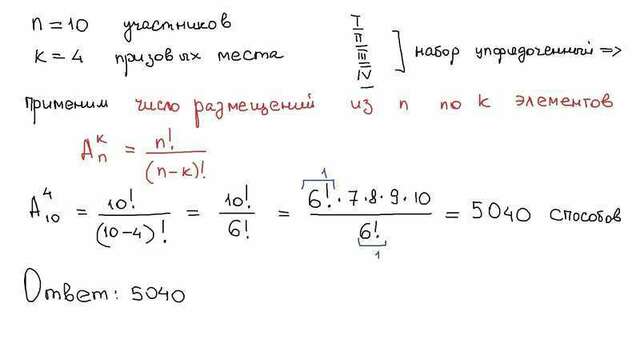 n = 10 участников
k = 4 призовых места
I
II
III
IV
] набор упорядоченный =>
Применим число размещений из n по k элементов
Aₙᵏ = n! / (n-k)!
A₁₀⁴ = 10! / (10-4)! = 10! / 6! = 6!·7·8·9·10 / 6! = 5040 способов
1
1
Ответ: 5040